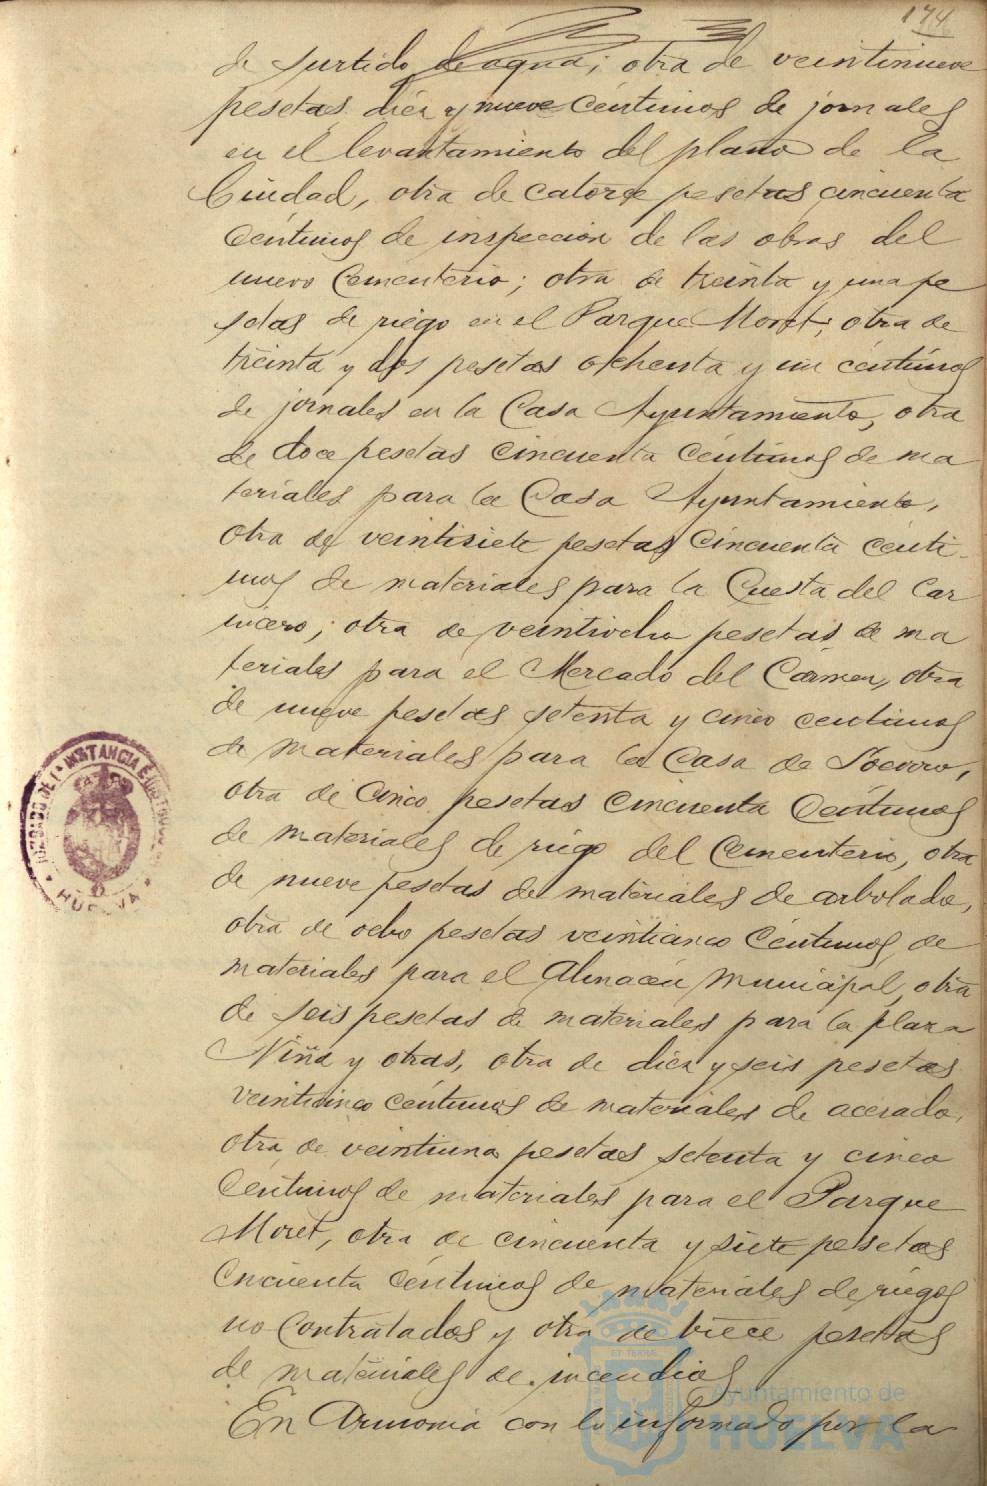 174
de surtido de agua; otra de veintinueve
pesetas diéz y nueve céntimos de jornales
en el levantamiento del plano de la
Ciudad, otra de catorce pesetas cincuenta
céntimos de inspeccion de las obras del
nuevo Cementerio; otra de treinta y una pe
setas de riego en el Parque Moret; otra de
treinta y dos pesetas ochenta y un céntimos
de jornales en la Casa Ayuntamiento, otra
de doce pesetas cincuenta céntimos de ma
teriales para la Casa Ayuntamiento,
otra de veintisiete pesetas cincuenta cénti-
mos de materiales para la Cuesta del Car
nicero; otra de veintiocho pesetas de ma
teriales para el Mercado del Cármen, otra
de nueve pesetas setenta y cinco centimos
de materiales para la Casa de Socorro,
otra de cinco pesetas cincuenta céntimos
de materiales de riego del Cementerio, otra
de nueve pesetas de materiales de arbolado,
otra de ocho pesetas veinticinco céntimos de
materiales para el Almacén Municipal, otra
de seis pesetas de materiales para la plaza
Niña y otras, otra de diéz y seis pesetas
veinticinco céntimos de materiales de acerado,
otra de veintiuna pesetas setenta y cinco
céntimos de materiales para el Parque
Moret, otra de cincuenta y siete pesetas
cincuenta céntimos de materiales de riegos
no contratados y otra de trece pesetas
de materiales de incendios
En Armonia con lo informado por la
JUZGADO DE 1ª INSTANCIA É INSTRUCCION
HUELVA
Ayuntamiento de
HUELVA